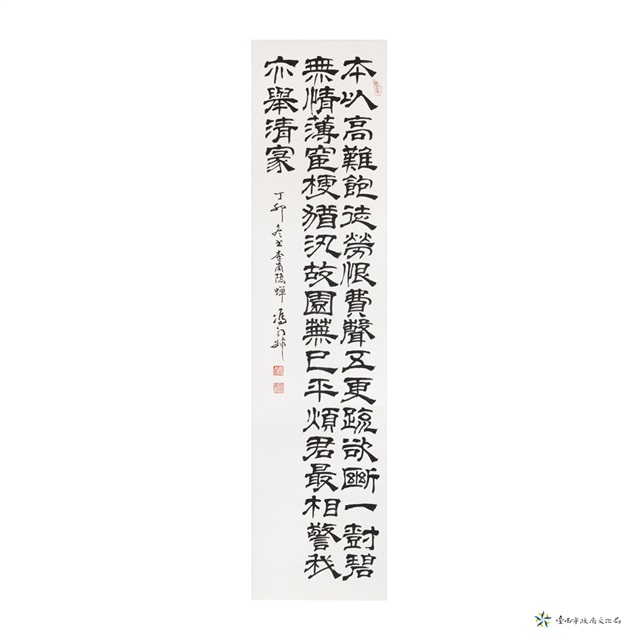 本以高難飽徒勞恨費聲五更疏欲斷一樹碧
無情薄宦梗猶汎故園蕪已平煩君最相警我
亦舉清家
丁卯冬書李商隱蟬
臺南市政府文化局